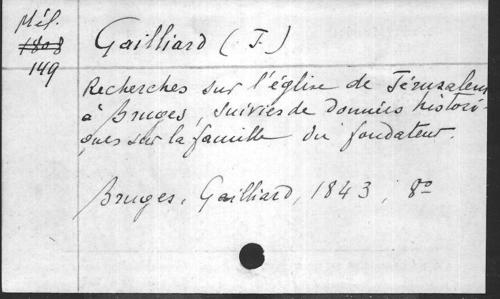 Mél.
1808
149
Gailliard (F.)
Recherches sur l'église de Jérusalem
à Bruges, suivies de données histori-
ques sur la famille du fondateur.
Bruges, Gailliard, 1843, 8º